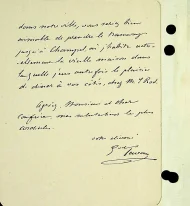 dans notre ville, vous seriez bien
aimable de prendre le tramway
jusqu'à Champel où j'habite actu-
ellement la vieille maison dans
laquelle j'eus autrefois le plaisir
de dîner à vos côtés, chez M. Rod.
Agréez, Monsieur et cher
confrère, mes salutations les plus
cordiales.
votre dévoué